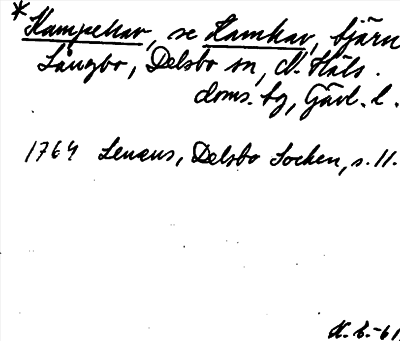 * Kampekav, se Kamkav, tjärn
Långbo, Delsbo sn, N. Häls.
doms. sg, Gävl. l.
1764 Lenæus, Delsbo Socken, s. 11.
K. E. -61